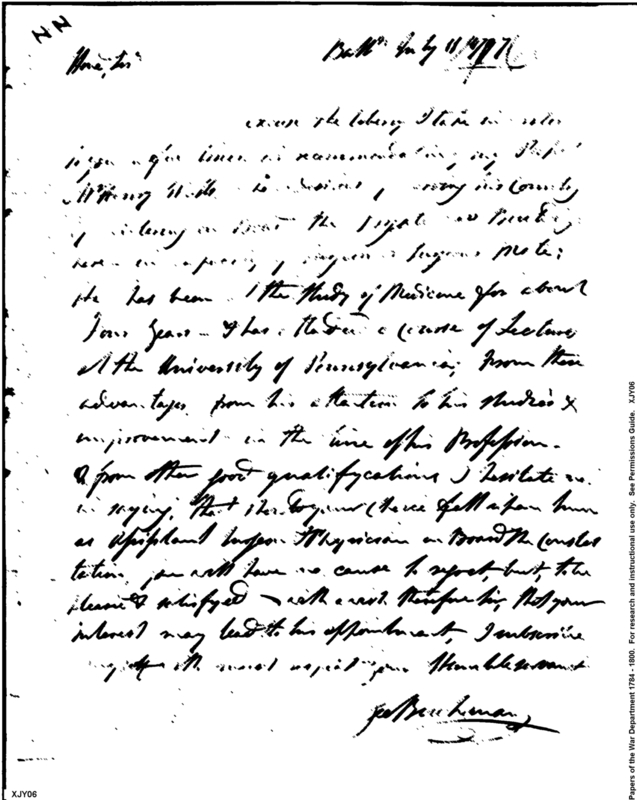 NN
Balto July 11 1797
excuse the liberty I take in
you a few lines in recommendation, my Pupil
Mr Henry is desirous of serving his Country
entering on Board the Frigate now
in capacity of Surgeons Mate;
He has been at the Study of Medicine for about
four Years - & has attended a course of Lectures
at the University of Pennsylvania, From these
advantages, from his attention to his studies &
improvement in the line of his Profession -
& from other good qualifycations, I hesitate not
in saying, that should your choice fall upon him
as assistant Surgeon & Physician on Board the Constel
lation, you will have no cause to regret, but, to be
pleased & satisfyed - with a wish therefore Sir, that your
interest may lead to his appointment, I subscribe
myself with most respect your Humble servant
Geo Buchanan
XJY06
Papers of the War Department 1784 - 1800. For research and instructional use only. See Permissions Guide. XJY06